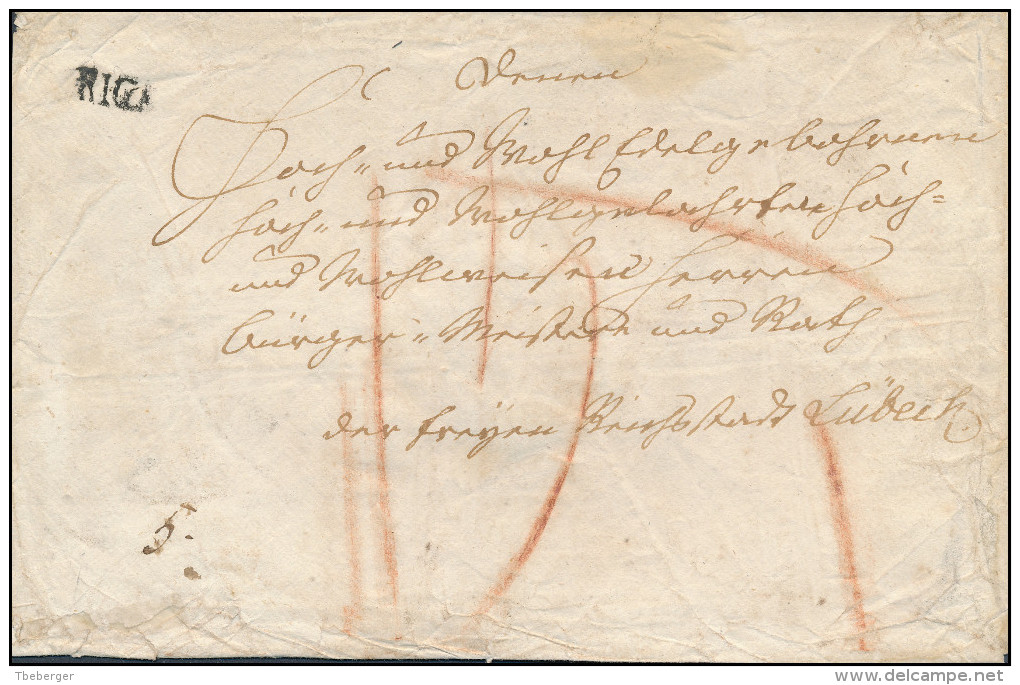 RIGA
Denen
Hoch- und Wohl Edelgebohrnen
Hoch- und Wohlgelahrten Hoch=
und Wohlweisen Herren
Bürger-Meistere und Rath
der freÿen Reichsstadt Lübeck.
5.
Tberberger
delcampe.net